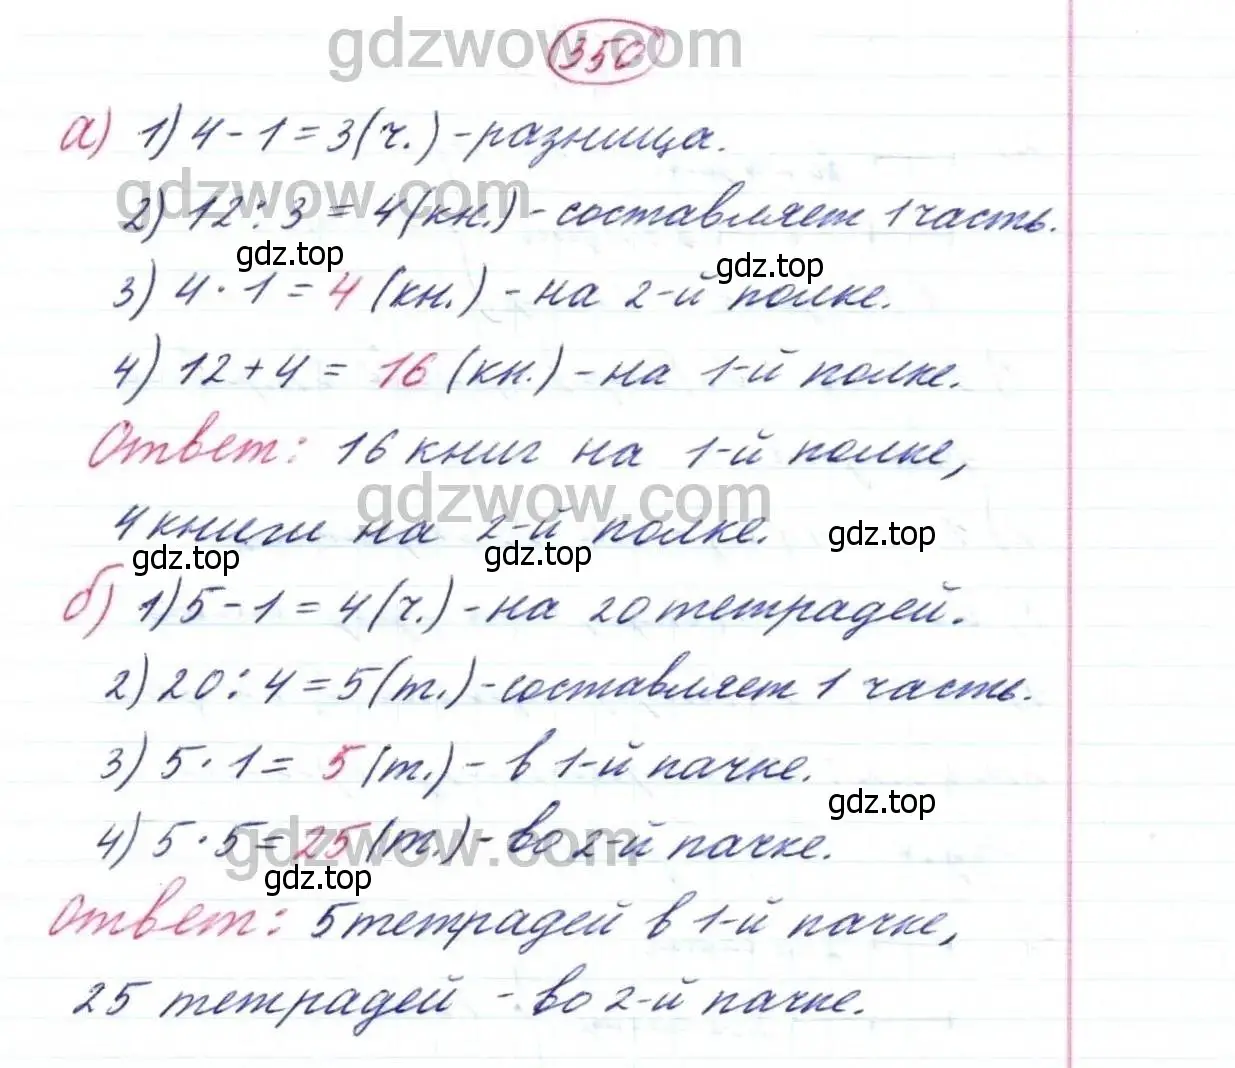 gdzwow.com
350
а) 1) 4 - 1 = 3 (ч.) - разница.
gdzwow.com
2) 12 : 3 = 4 (кн.) - составляет 1 часть.
gdz.top
gdz.top
3) 4 · 1 = 4 (кн.) - на 2-й полке.
4) 12 + 4 = 16 (кн.) - на 1-й полке.
Ответ: 16 книг на 1-й полке,
gdzwow.com
4 книги на 2-й полке.
gdz.top
gdz.top
gdz.top
б) 1) 5 - 1 = 4 (ч.) - на 20 тетрадей.
2) 20 : 4 = 5 (т.) - составляет 1 часть.
3) 5 · 1 = 5 (т.) - в 1-й пачке.
gdz.top
4) 5 · 5 = 25 (т.) - во 2-й пачке.
gdzwow.com
gdz.top
Ответ: 5 тетрадей в 1-й пачке,
25 тетрадей - во 2-й пачке.